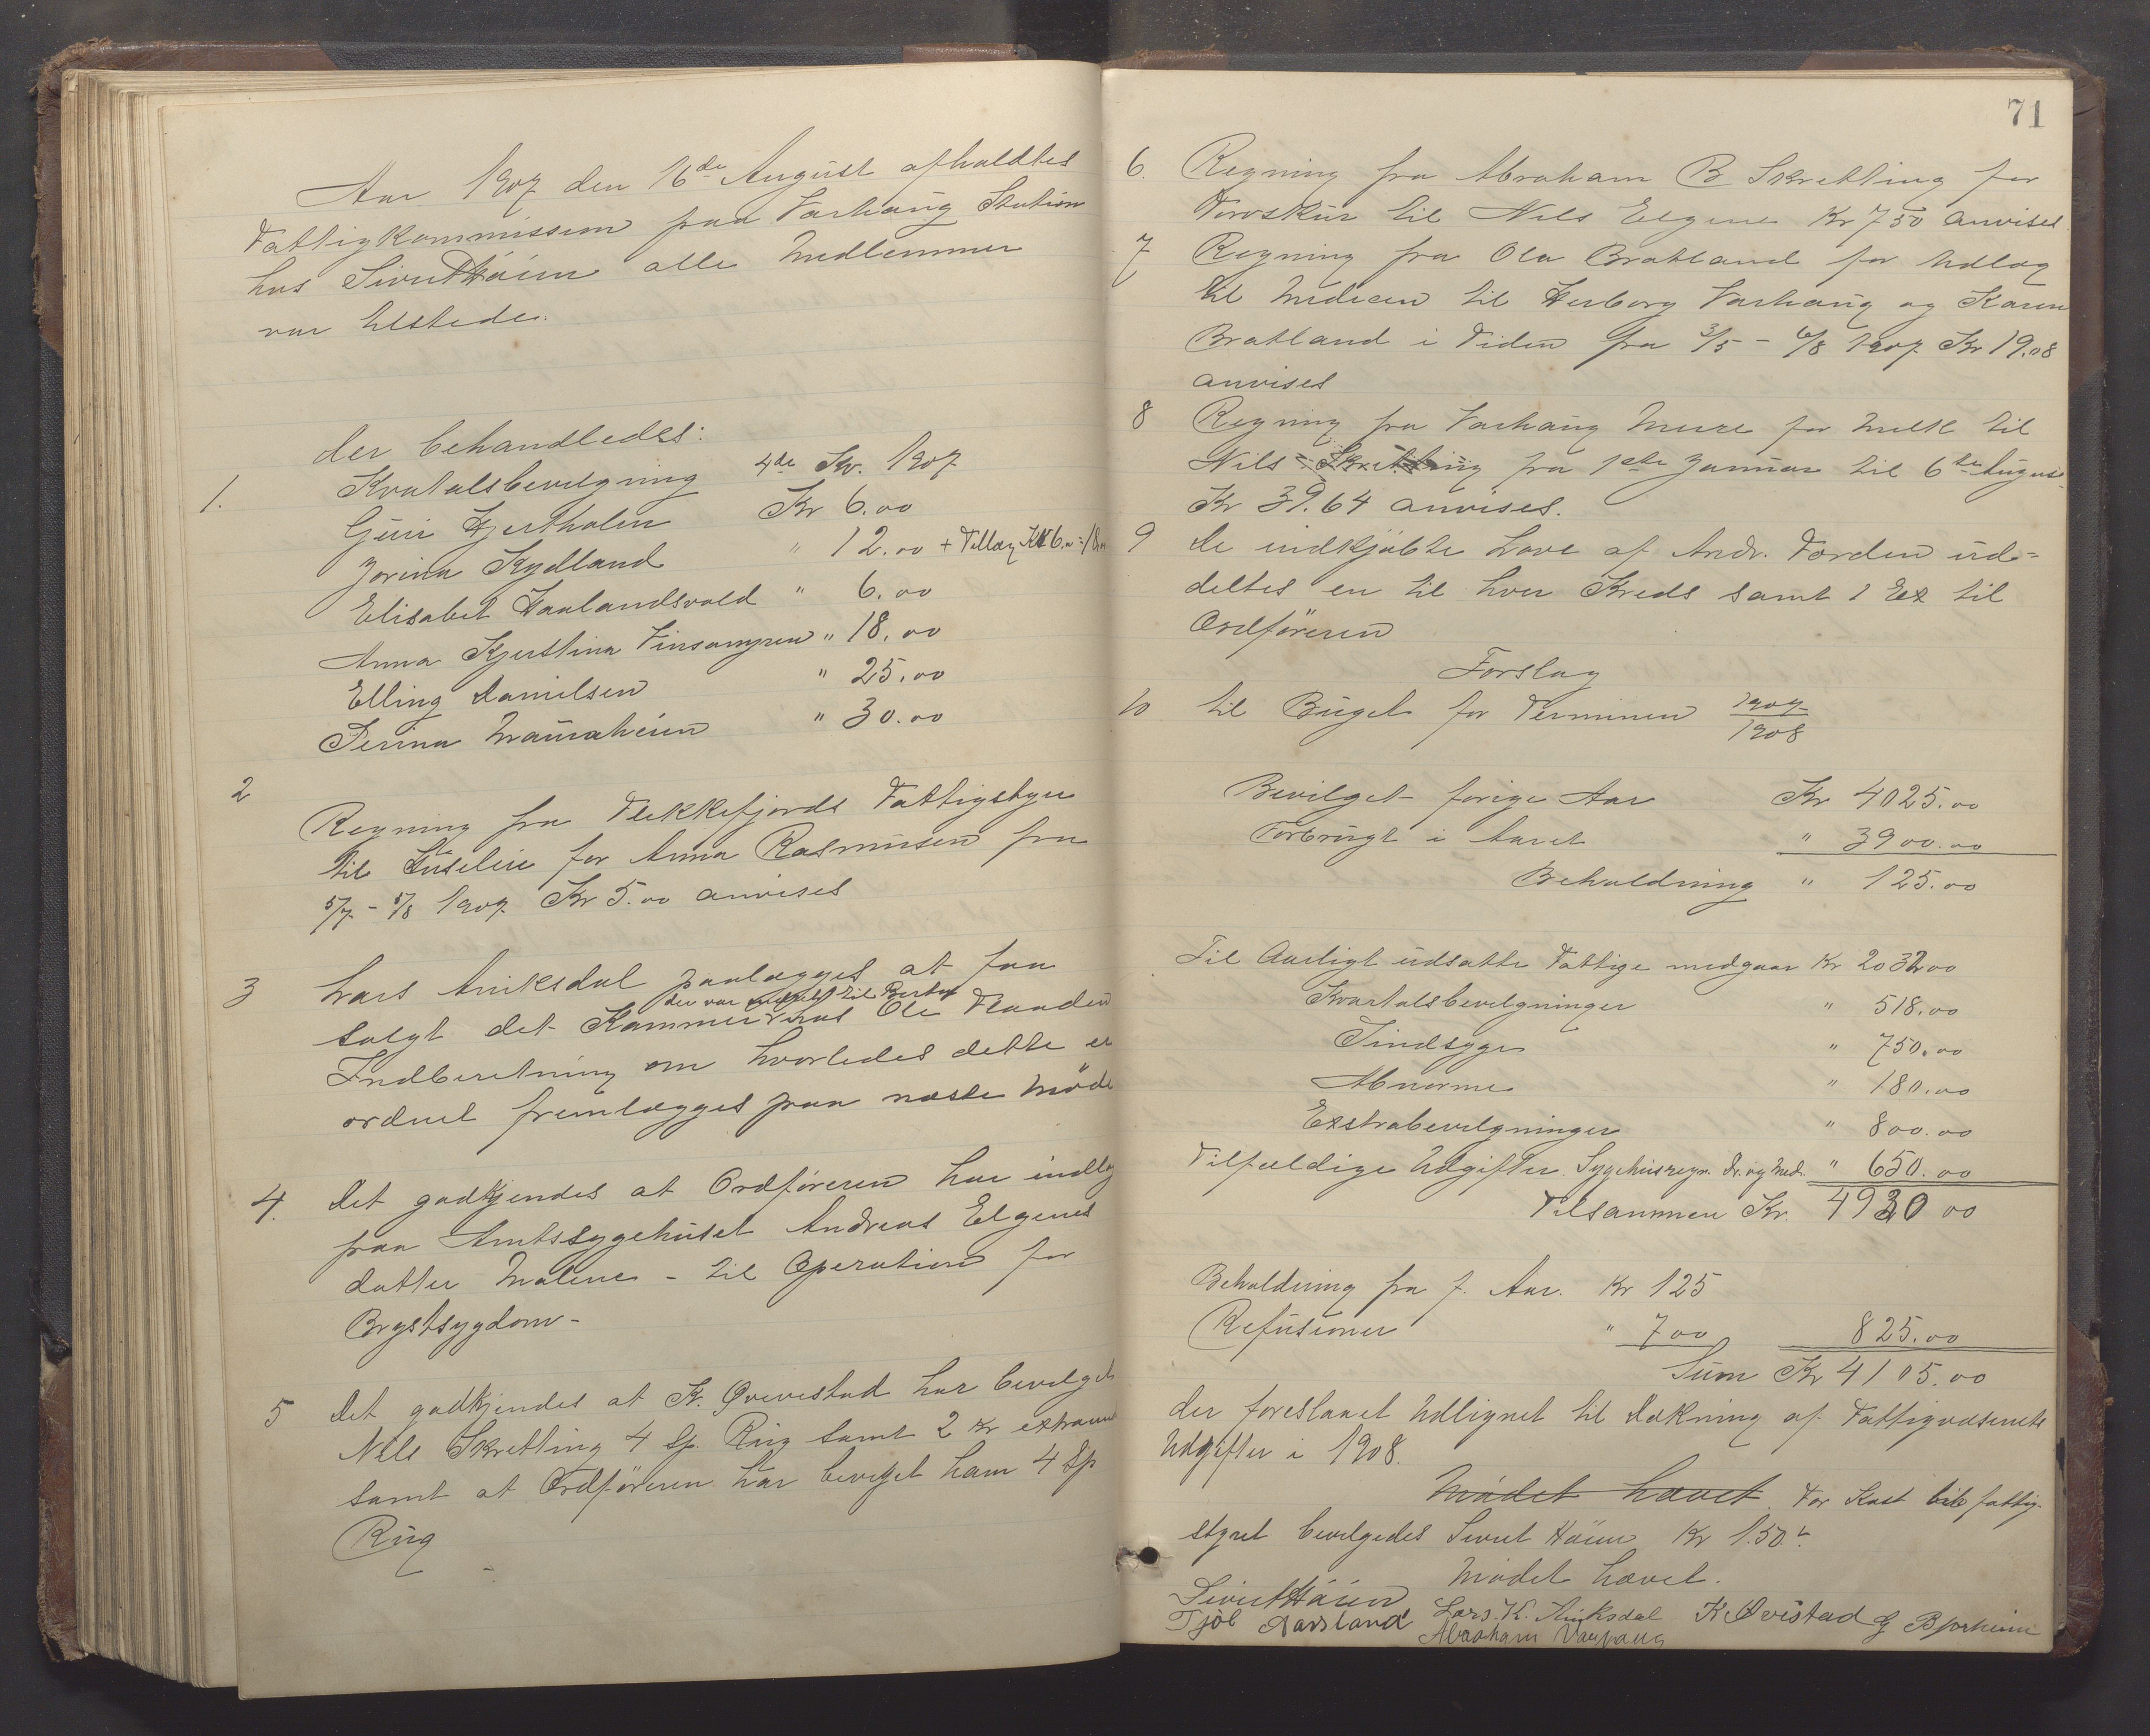 Aar 1907 den 16de August afholdtes
Fattigkommission paa Varhaug Station
hos Sivert Høien alle Medlemmer
var tilstede.
der behandledes:
1. Kvatalsbevilgning 4de Kv. 1907
Guri Hjertholen Kr 6.00
Jorina Rydland " 12.00 + Tillæg Kr 6.00 = 18.00
Elisabet Haalandsvold " 6.00
Anna Kjerstina " 18.00
Elling Danielsen " 25.00
Serina " 30.00
2 Regning fra Flekkefjords Fattigstyre
til Husleie for Anna Rasmusen fra
5/7 - 5/8 1907 Kr 5.00 anvises
3 Lars Auksdal paalægges at faa
der var til
solgt det Kammer hos Ole
Indberetning om hvorledes dette er
ordnet fremlægges paa næste Møde
4. Det godkjendes at Ordføreren har indlag
paa Amtssygehuset Andreas Elgenes
datter Malene - til Operation for
Brystsygdom -
5 Det godkjendes at K. Qvevestad har bevilget
Nils Skretting 4 Sp. Rug samt 2 Kr
samt at Ordføreren har bevilget ham 4 Sp
Rug
71
6. Regning fra Abraham B Skretting for
Torvskur til Nils Elgene Kr 7.50 anvises
7 Regning fra Ola Bratland for Udlæg
til Medicin til Herborg Varhaug og Karen
Bratland i Tiden fra 3/5 - 6/8 1907 Kr 19.08
anvises
8 Regning fra Varhaug Meieri for Melk til
Nils Skretting fra 1ste Januar til 6te August
Kr 39.64 anvises.
9 De indkjøbte Love af Andr. Førden ud=
deltes en til hver Kreds samt 1 Ex til
Ordføreren
Forslag
10 til Buget for Terminen 1907/1908
Bevilget forige Aar Kr 4025.00
Forbrugt i Aaret " 3900.00
Beholdning " 125.00
Til Aarligt udsatte Fattige medgaar Kr 2032.00
Kvartalsbevilgninger " 518.00
Sindsyge " 750.00
Abnorme " 180.00
Exstrabevilgninger " 800.00
Tilfældige Udgifter Sygehusregn. Dr. og Med. " 650.00
Tilsammen Kr. 4930 00
Beholdning fra f. Aar. Kr 125
Refusioner " 700 825.00
Sum Kr 4105.00
der foreslaaet Udlignet til Dækning af Fattigvæsenets
Udgifter i 1908.
Mødet hævet. For Kost til fattig-
styret bevilgedes Sivert Høien Kr 1.50.
Mødet hævet.
Sivert Høien Lars K. Auksdal K Qvistad G Bjorheim
Tjøl Aarsland Abraham Varhaug